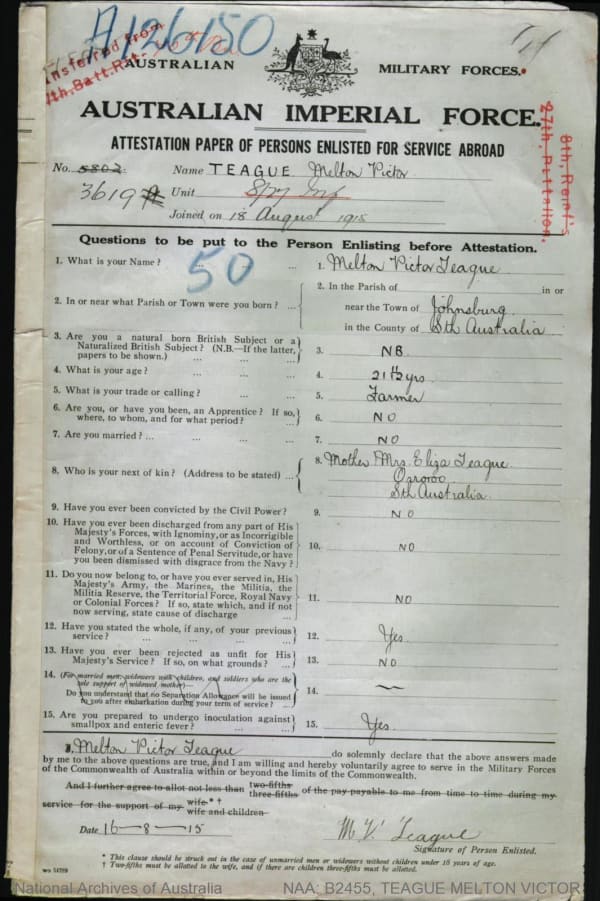 A126150
Transferred from
7th, Batt. Rst.
AUSTRALIAN MILITARY FORCES.
AUSTRALIAN IMPERIAL FORCE.
ATTESTATION PAPER OF PERSONS ENLISTED FOR SERVICE ABROAD
No. 5802 Name TEAGUE Melton Victor
3619 A Unit
Joined on 18 August 1915
8th, Reinf's
27th, Battalion.
Questions to be put to the Person Enlisting before Attestation.
50
1. What is your Name? ... ... 1. Melton Victor Teague
2. In or near what Parish or Town were you born? ... 2. In the Parish of in or
near the Town of Johnsburg
in the County of Sth Australia
3. Are you a natural born British Subject or a
Naturalized British Subject? (N.B.—If the latter,
papers to be shown.) ... ... ... 3. NB
4. What is your age? ... ... ... 4. 21 1/2 yrs.
5. What is your trade or calling? ... ... ... 5. Farmer
6. Are you, or have you been, an Apprentice? If so,
where, to whom, and for what period? ... 6. NO
7. Are you married? ... ... ... ... 7. NO
8. Who is your next of kin? (Address to be stated) ... 8. Mother Mrs. Eliza Teague
Ororoo
Sth Australia
9. Have you ever been convicted by the Civil Power? 9. NO
10. Have you ever been discharged from any part of His
Majesty's Forces, with Ignominy, or as Incorrigible
and Worthless, or on account of Conviction of
Felony, or of a Sentence of Penal Servitude, or have
you been dismissed with disgrace from the Navy? 10. NO
11. Do you now belong to, or have you ever served in, His
Majesty's Army, the Marines, the Militia, the
Militia Reserve, the Territorial Force, Royal Navy
or Colonial Forces? If so, state which, and if not
now serving, state cause of discharge ... 11. NO
12. Have you stated the whole, if any, of your previous
service? ... ... ... ... 12. Yes.
13. Have you ever been rejected as unfit for His
Majesty's Service? If so, on what grounds? ... 13. NO
14. (For married men, widowers with children, and soldiers who are the
sole support of widowed mother)—
Do you understand that no Separation Allowance will be issued
to you after embarkation during your term of service? ... 14. —
15. Are you prepared to undergo inoculation against
smallpox and enteric fever? ... ... 15. Yes.
I, Melton Victor Teague do solemnly declare that the above answers made
by me to the above questions are true, and I am willing and hereby voluntarily agree to serve in the Military Forces
of the Commonwealth of Australia within or beyond the limits of the Commonwealth.
And I further agree to allot not less than two-fifths three-fifths of the pay payable to me from time to time during my
service for the support of my wife * † wife and children
Date 16—8—15 M V Teague
Signature of Person Enlisted.
* This clause should be struck out in the case of unmarried men or widowers without children under 18 years of age.
† Two-fifths must be allotted to the wife, and if there are children three-fifths must be allotted.
National Archives of Australia NAA: B2455, TEAGUE MELTON VICTOR